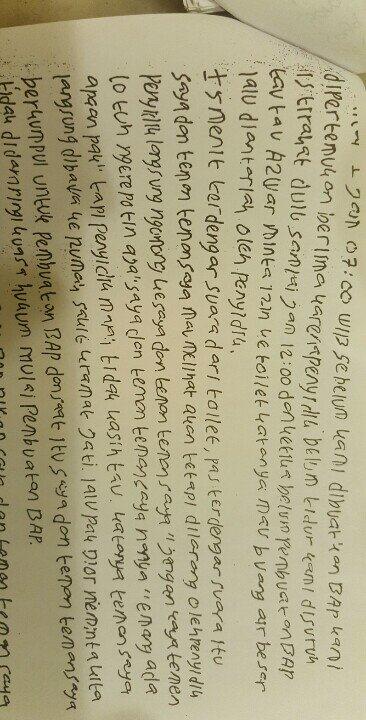 ± Jam 07:00 WIB sebelum kami dibuatkan BAP kami
dipertemukan berlima karena penyidik belum tidur kami disuruh
istirahat dulu sampai jam 12:00 dan ketika belum pembuatan BAP
tau tau Azwar minta izin ke toilet katanya mau buang air besar
lalu diantarlah oleh penyidik.
± 5 menit terdengar suara dari toilet, pas terdengar suara itu
saya dan temen temen saya mau melihat akan tetapi dilarang oleh penyidik
penyidik langsung ngomong ke saya dan temen temen saya "jangan kaya temen
lo tuh ngerepotin aja" saya dan temen temen saya nanya "emang ada
apaan pak" tapi penyidik mani tidak kasih tau. katanya temen saya
langsung dibawa ke rumah sakit kramat jati. lalu pak Dior meminta kita
berkumpul untuk pembuatan BAP dan saat itu saya dan temen temen saya
tidak didampingi kuasa hukum mulai pembuatan BAP.
saya dan temen temen saya